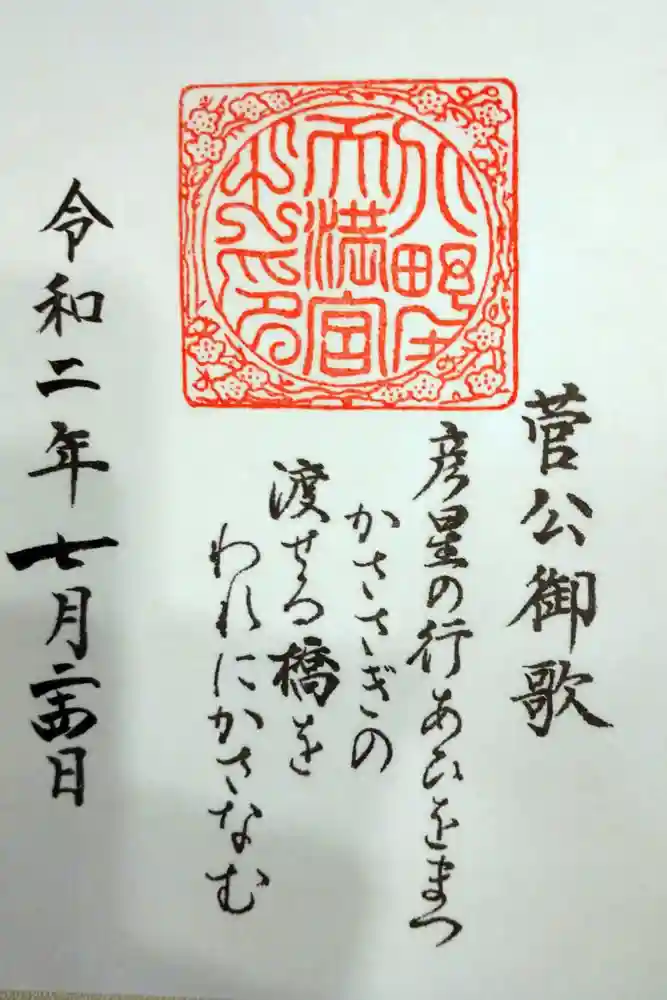 天満宮
之印
菅公御歌
彦星の行あひをまつ
かささぎの
渡せる橋を
われにかさなむ
令和二年七月二十四日